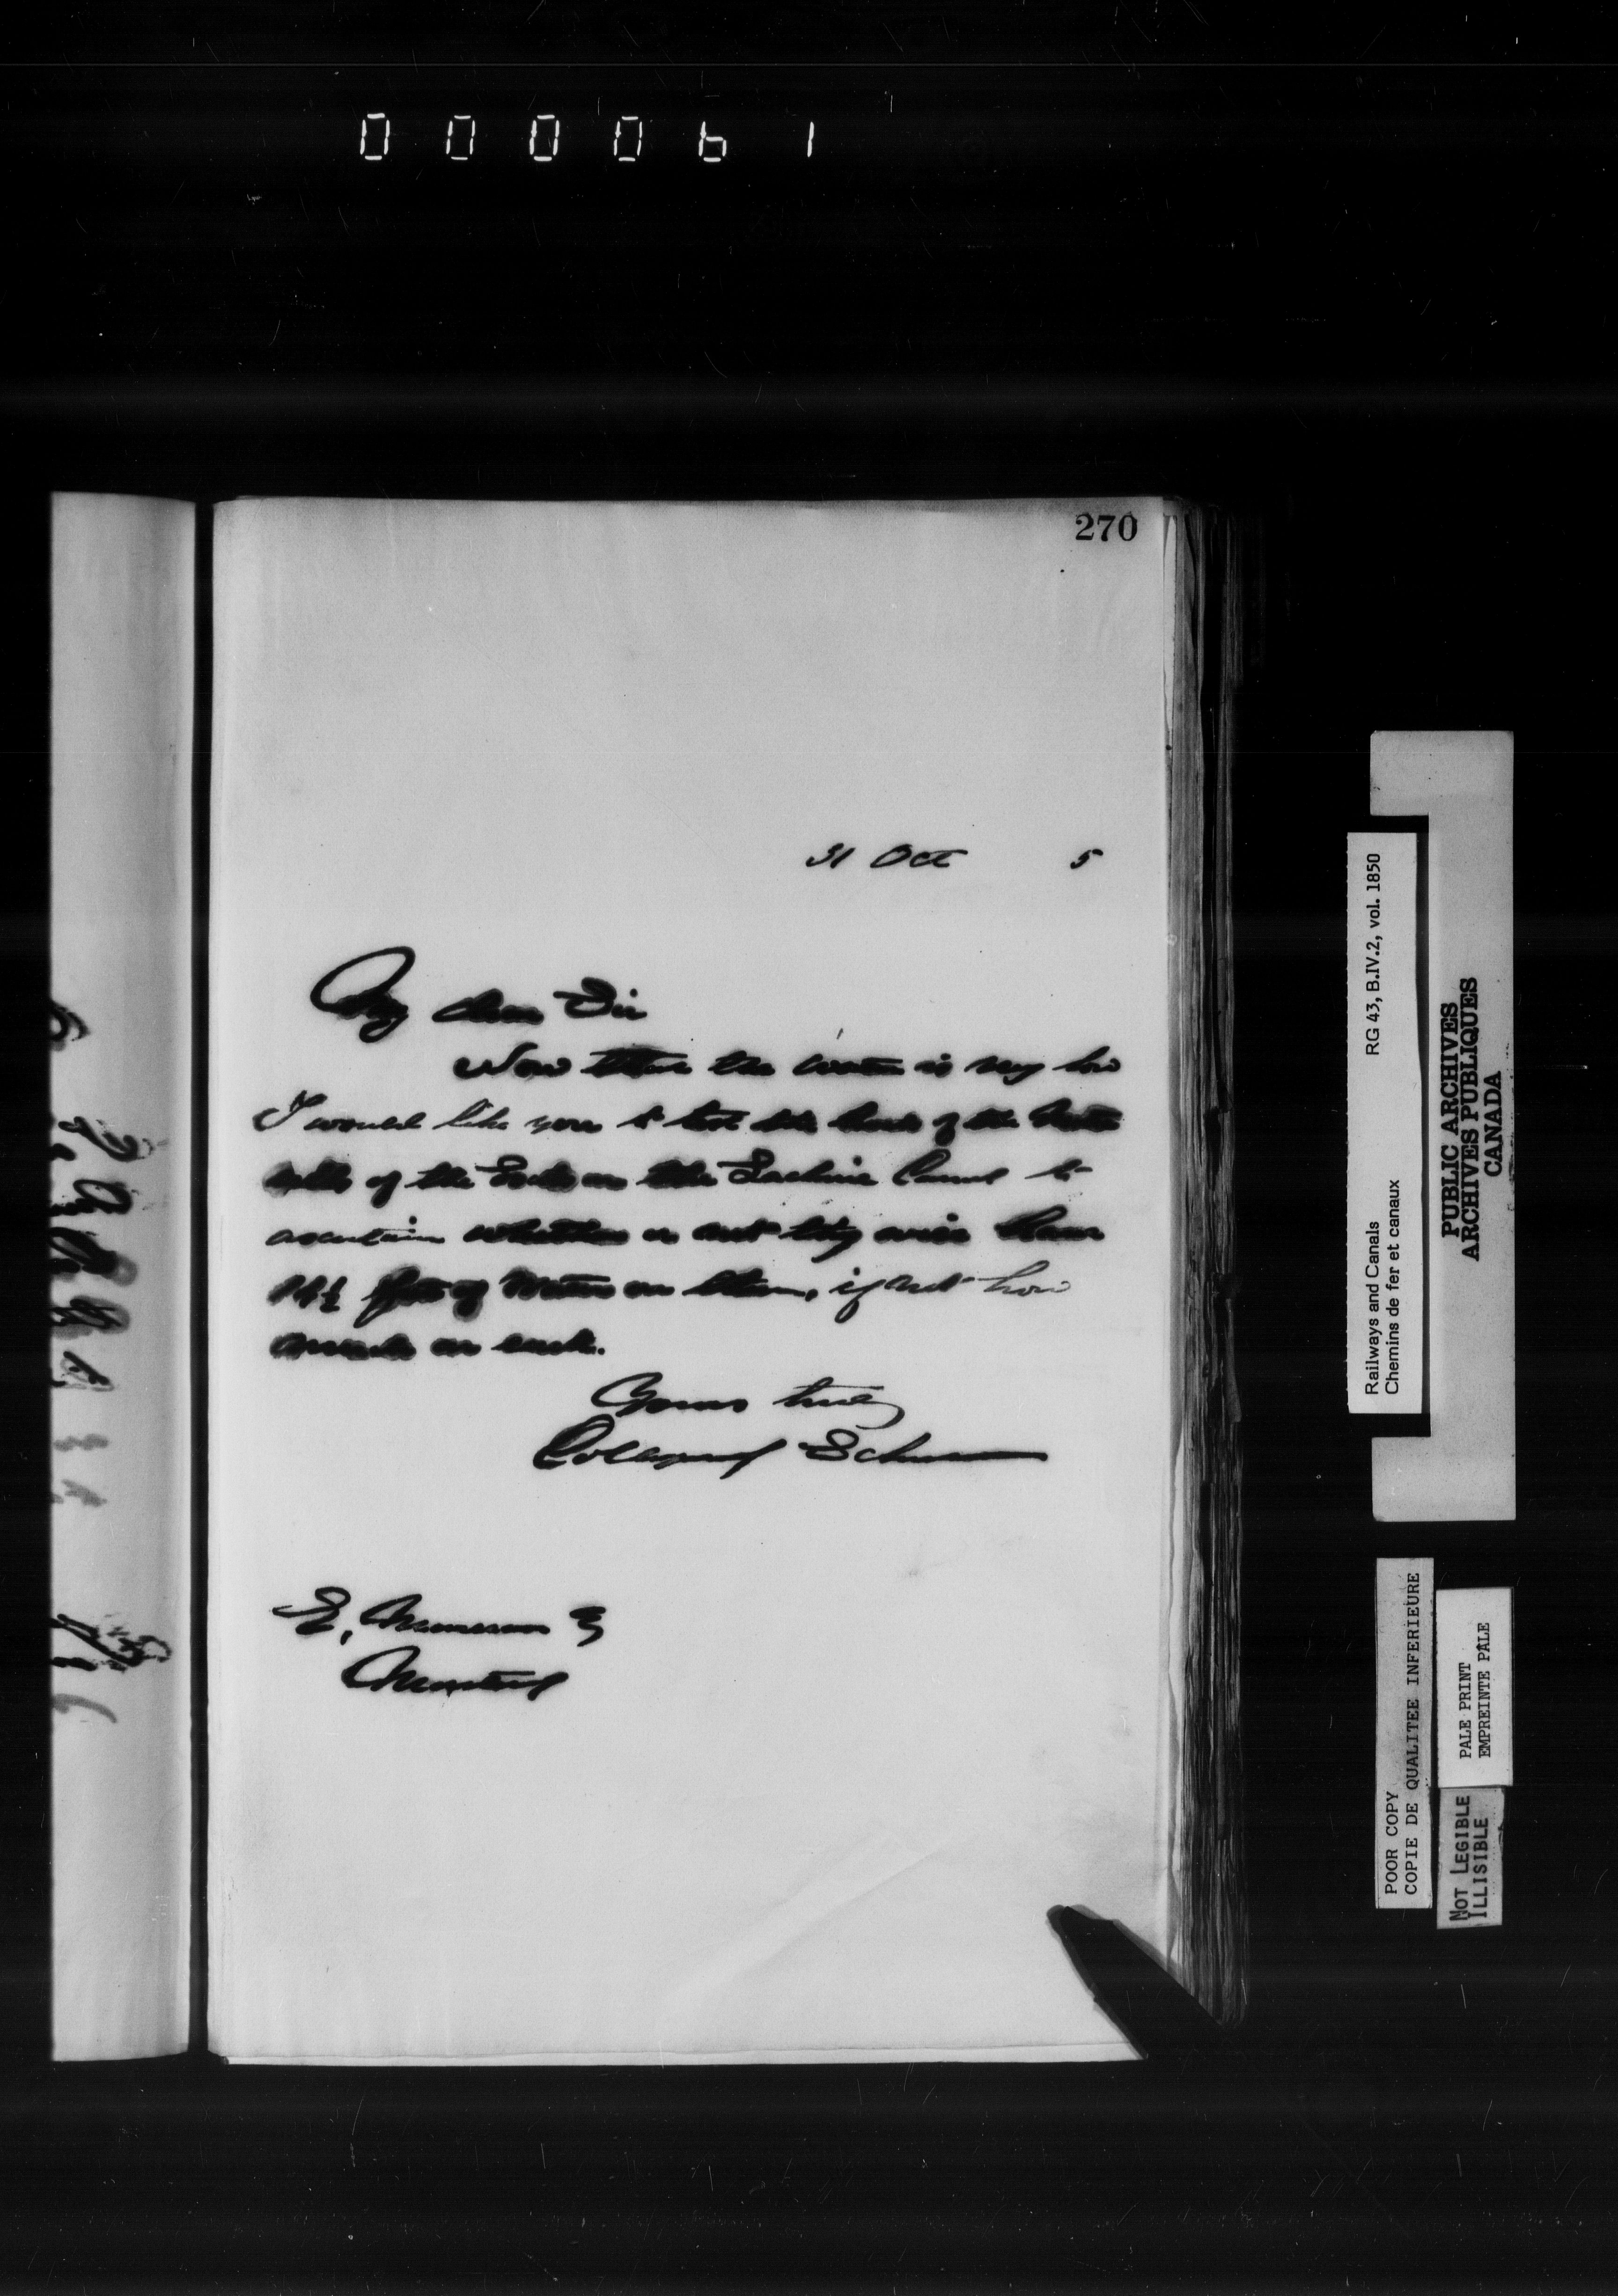 000061
270
31 Oct 5
My dear Sir
Now that the water is very low
I would like you to test the levels of the mitre
sills of the Locks on the Lachine Canal to
ascertain whether or not they will have
14½ feet of water on them, if not how
much on each.
Yours truly
Collingwood Schreiber
E. Marceau Esq
Montreal
Railways and Canals RG 43, B.IV.2, vol. 1850
Chemins de fer et canaux
PUBLIC ARCHIVES
ARCHIVES PUBLIQUES
CANADA
POOR COPY
COPIE DE QUALITEE INFERIEURE
PALE PRINT
EMPREINTE PÂLE
NOT LEGIBLE
ILLISIBLE